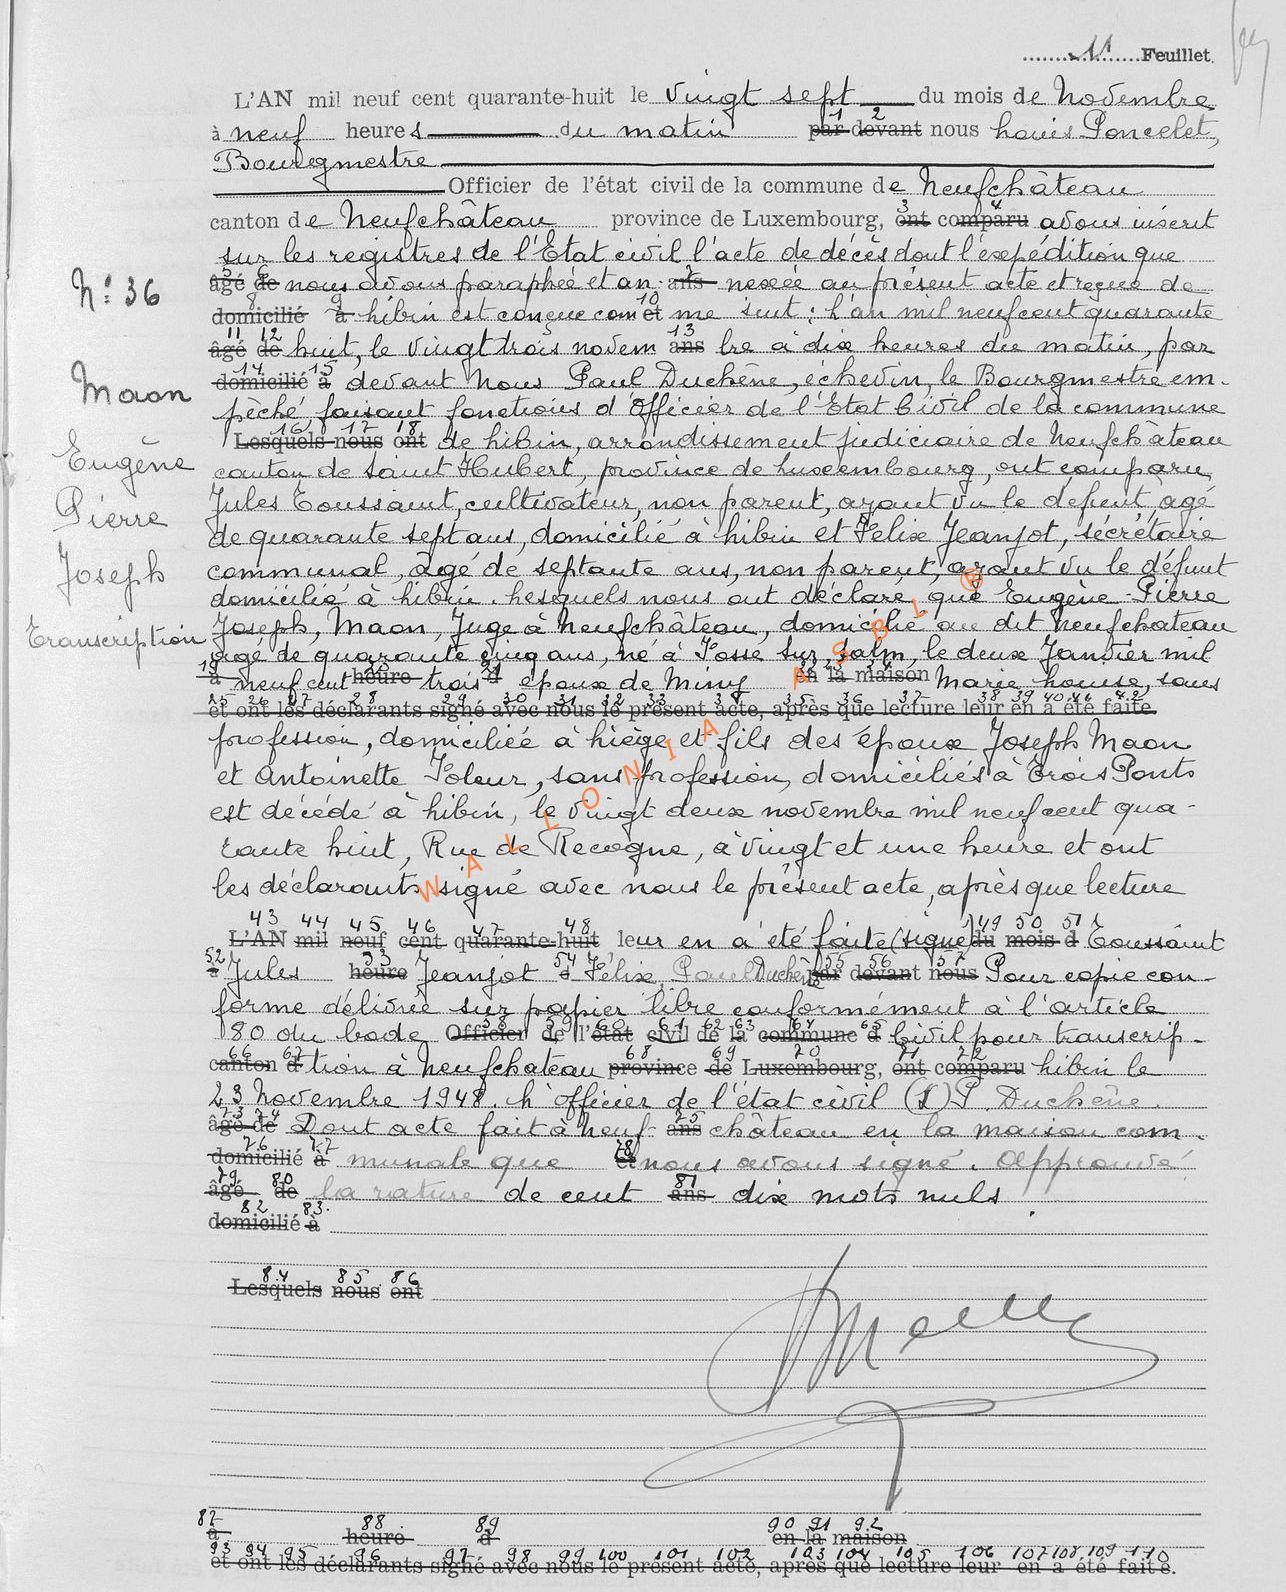 11 Feuillet
L'AN mil neuf cent quarante-huit le vingt sept du mois de Novembre
à neuf heures du matin par 1 devant 2 nous Louis Poncelet,
Bourgmestre
Officier de l'état civil de la commune de Neufchâteau
canton de Neufchâteau province de Luxembourg, ont 3 comparu 4 avons inscrit
sur les registres de l'Etat civil l'acte de décès dont l'expédition que
âgé 5 de 6 nous avons paraphée et an ans 7 nexée au présent acte et reçue de
N° 36
domicilié 8 à 9 Libin est conçue com et 10 me suit : L'an mil neuf cent quarante
âgé 11 de 12 huit, le vingt trois novem ans 13 bre à dix heures du matin, par
domicilié 14 à 15 devant Nous Paul Duchêne, échevin, le Bourgmestre em-
Maon
pêché faisant fonctions d'Officier de l'Etat Civil de la commune
Lesquels 16 nous 17 ont 18 de Libin, arrondissement judiciaire de Neufchâteau
Eugène
canton de Saint Hubert, province de Luxembourg, ont comparu
Pierre
Jules Toussaint, cultivateur, non parent, ayant vu le défunt, âgé
de quarante sept ans, domicilié à Libin et Félix Jeanjot, secrétaire
Joseph
communal, âgé de septante ans, non parent, ayant vu le défunt
domicilié à Libin. Lesquels nous ont déclaré que Eugène-Pierre
Transcription
Joseph, Maon, Juge à Neufchâteau, domicilié au dit Neufchateau
âgé de quarante cinq ans, né à Fosse sur Salm, le deux Janvier mil
à 19 neuf cent heure 20 trois d 21 époux de Miny en 22 la 23 maison 24 Marie Louise, sans
25 26 27 28 29 30 31 32 33 34 35 36 37 38 39 40 41 42
et ont les déclarants signé avec nous le présent acte, après que lecture leur en a été faite.
profession, domiciliée à Liège et fils des époux Joseph Maon
et Antoinette Soleur, sans profession, domiciliés à Trois Ponts
est décédé à Libin, le vingt deux novembre mil neuf cent qua-
rante huit, Rue de Recogne, à vingt et une heure et ont
les déclarants signé avec nous le présent acte, après que lecture
L'AN 43 mil 44 neuf 45 cent 46 quarante-huit 47 48 leur en a été faite (signé) du 49 mois 50 d 51 Toussaint
à 52 Jules heure 53 Jeanjot d 54 Félix Paul Duchêne par 55 devant 56 nous 57 Pour copie con-
forme délivrée sur papier libre conformément à l'article
80 du Code Officier 58 de 59 l'état 60 civil 61 de 62 la 63 commune 64 d 65 Civil pour transcrip-
canton 66 d 67 tion à Neufchateau province 68 de 69 Luxembourg, 70 ont 71 comparu 72 Libin le
23 Novembre 1948. L'officier de l'état civil (s) P. Duchêne.
âgé 73 de 74 Dont acte fait à Neuf- ans 75 château en la maison com-
domicilié 76 à 77 munale que et 78 nous avons signé. Approuvé
âgé 79 de 80 la rature de cent ans 81 dix mots nuls
domicilié 82 à 83.
Lesquels 84 nous 85 ont 86
87 88 89 90 91 92
à heure d en la maison
93 94 95 96 97 98 99 100 101 102 103 104 105 106 107 108 109 110
et ont les déclarants signé avec nous le présent acte, après que lecture leur en a été faite.
WALLONIA ASBL ®